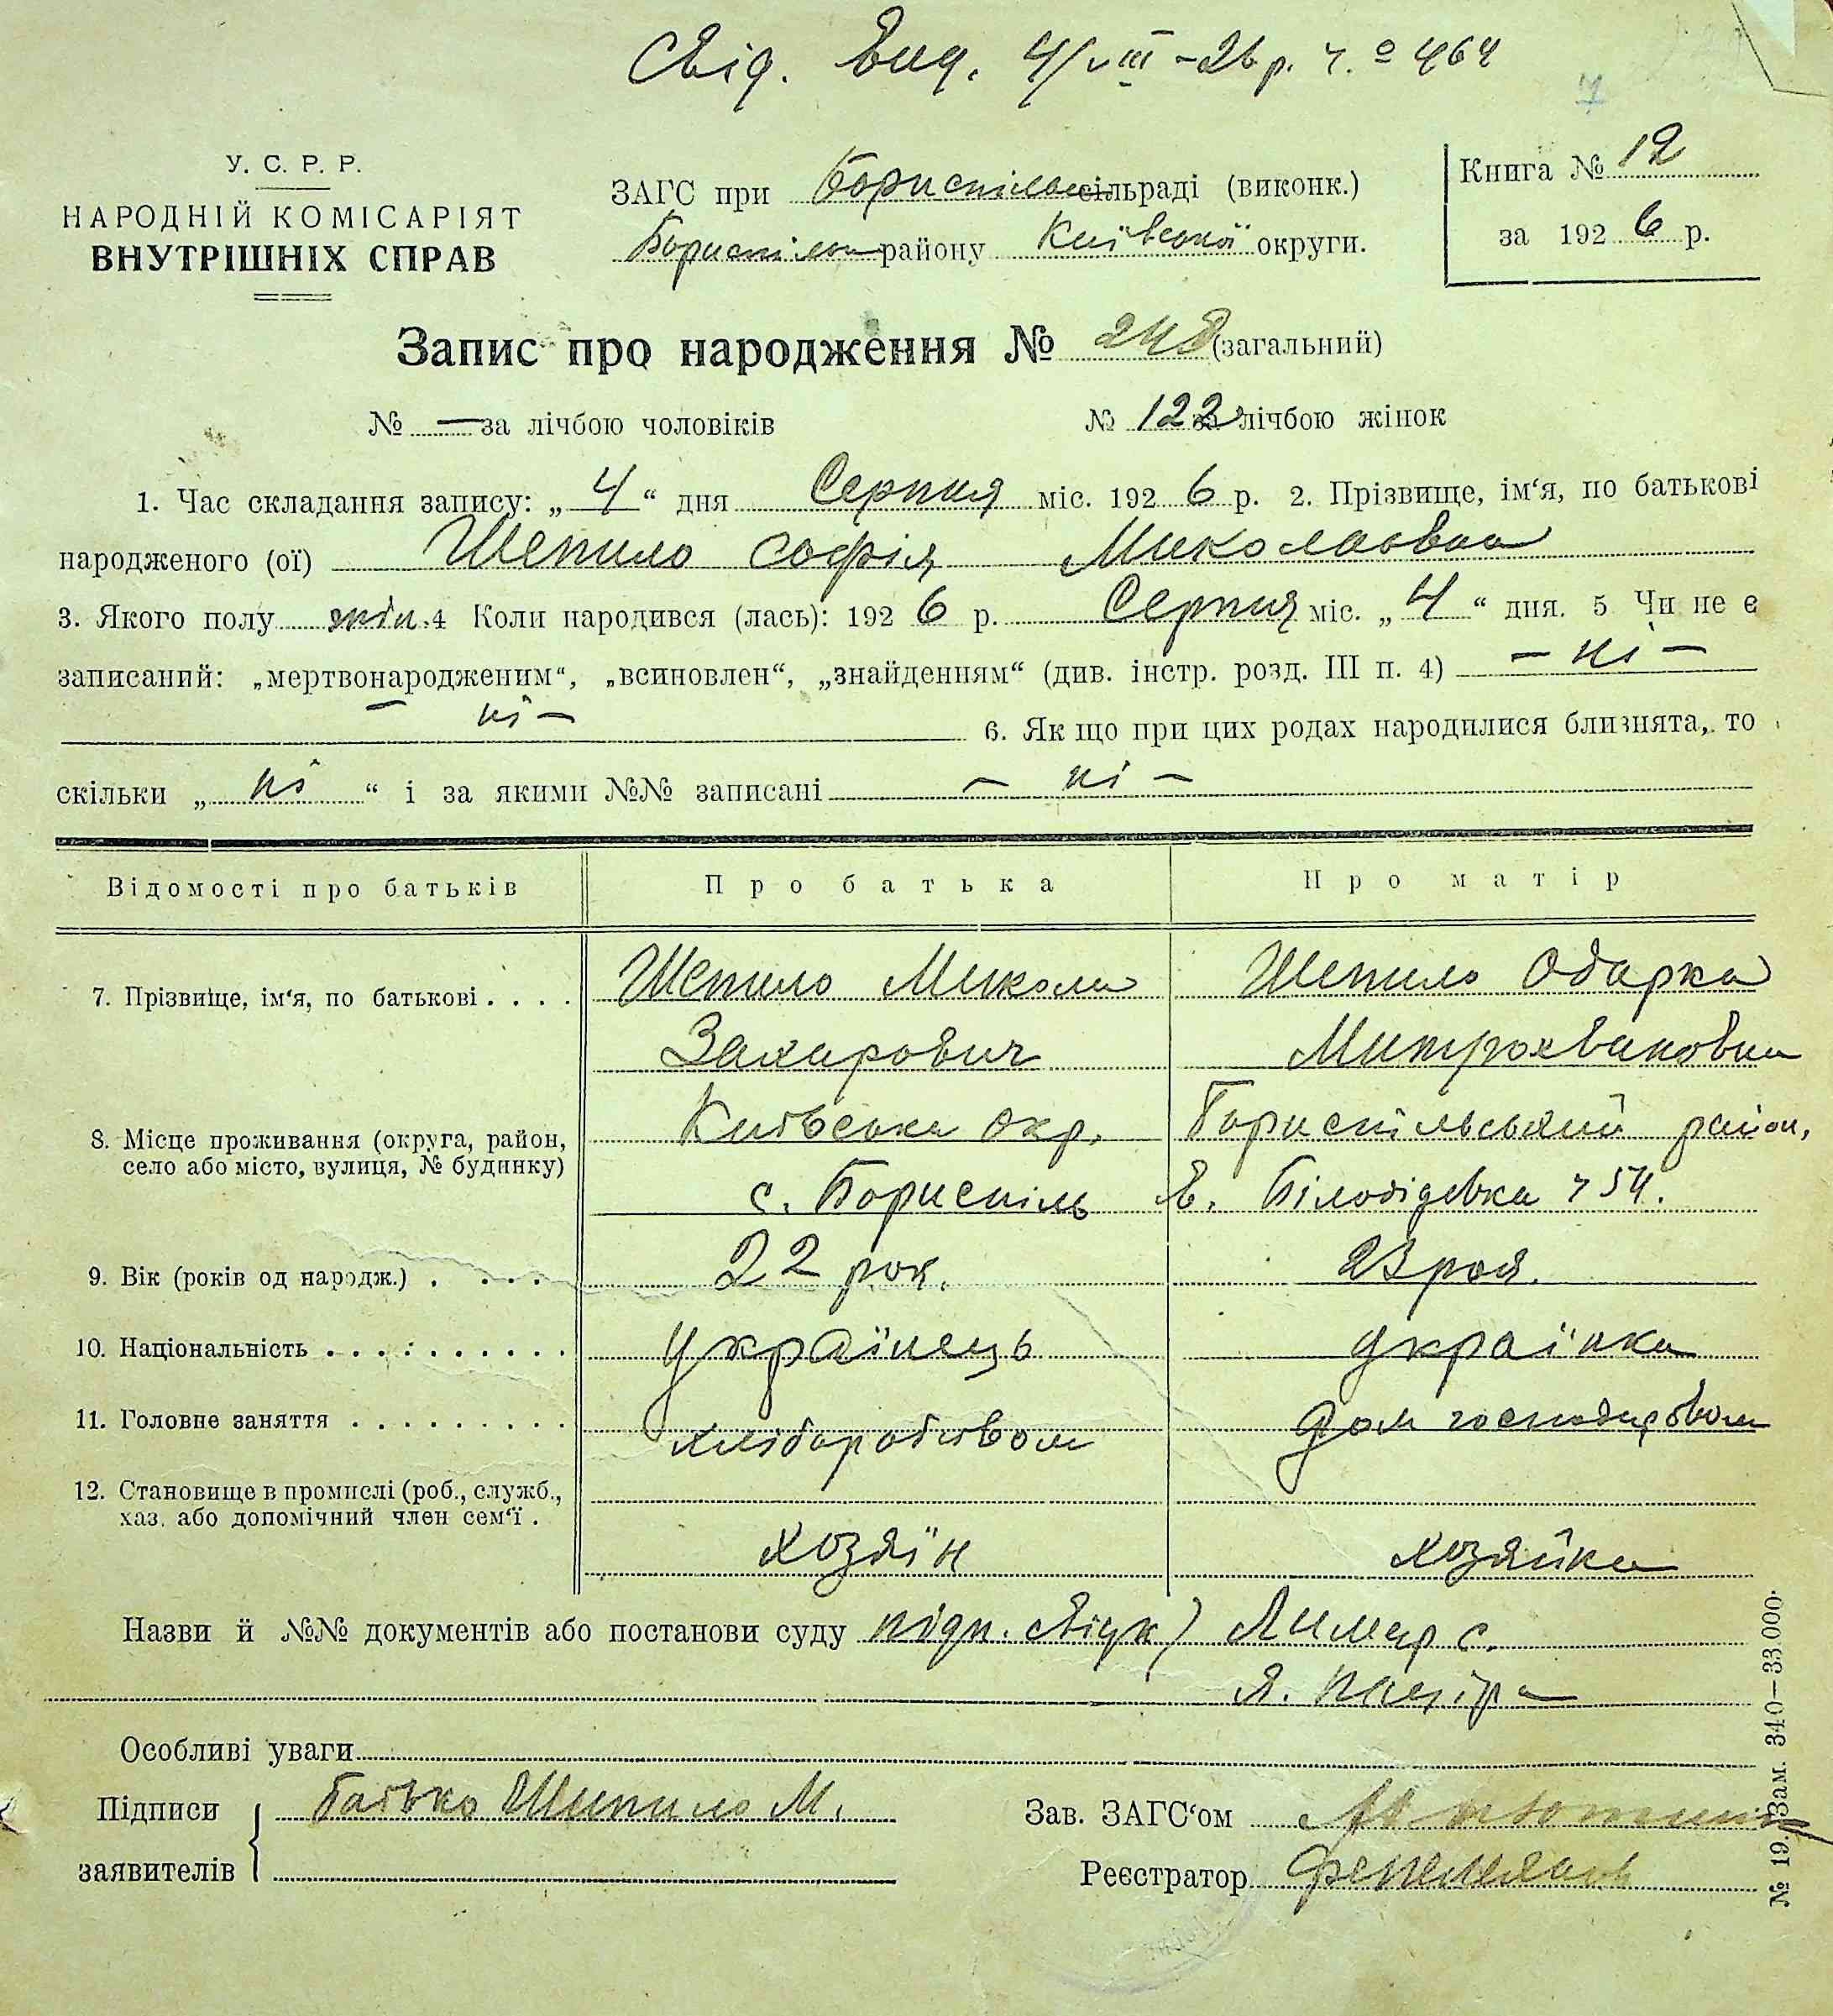 Свід. Вид. 4/VIII-26 р. ч.º 464
У. С. Р. Р.
НАРОДНІЙ КОМІСАРІЯТ
ВНУТРІШНІХ СПРАВ
ЗАГС при Бориспільсільраді (виконк.)
Бориспільрайону Київської округи.
Книга № 12
за 1926 р.
Запис про народження № 248 (загальний)
№ — за лічбою чоловіків
№ 122 за лічбою жінок
1. Час складання запису: „4“ дня Серпня міс. 1926 р. 2. Прізвище, ім‘я, по батькові
народженого (ої) Шепило Софія Миколаовна
3. Якого полу жін. 4 Коли народився (лась): 1926 р. Серпня міс. „4“ дня. 5 Чи не є
записаний: „мертвонародженим“, „всиновлен“, „знайденням“ (див. інстр. розд. III п. 4) — ні —
— ні — 6. Як що при цих родах народилися близнята, то
скільки „ні“ і за якими №№ записані — ні —
Відомості про батьків Про батька Про матір
7. Прізвище, ім‘я, по батькові . . . . Шепило Микола Шепило Одарка
Захарович Митрохвановна
8. Місце проживання (округа, район, село або місто, вулиця, № будинку) Київська окр. Бориспільський район,
с. Бориспіль в. Білодідовка ч 54.
9. Вік (років од народж.) . . . . 22 рок. 23 рок.
10. Національність . . . . . . . . . . українець українка
11. Головне заняття . . . . . . . . . хліборобством дом господарством
12. Становище в промислі (роб., служб., хаз. або допомічний член сем‘ї .
хозяїн хозяйка
Назви й №№ документів або постанови суду підп. свідк) Лимар С.
Я.
Особливі уваги
Підписи заявителів батько Шепило М.
Зав. ЗАГС‘ом
Реєстратор
№ 19. Зам. 340—33.000.